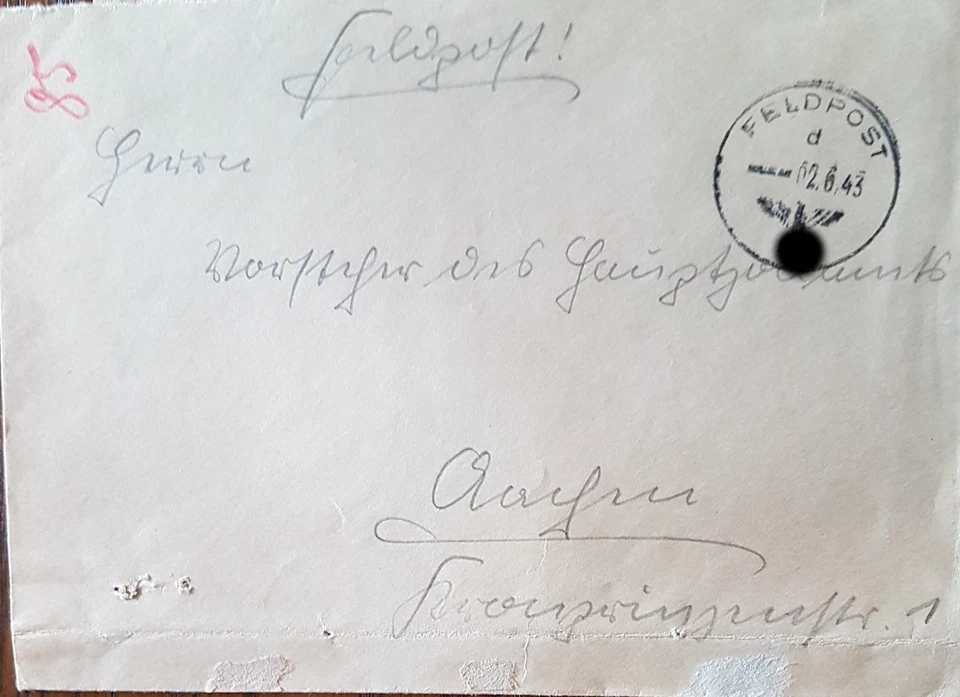 Feldpost!
FELDPOST
d
02.6.43
Herrn
Vorsteher des Hauptzollamts
Aachen
Kronprinzenstr. 1